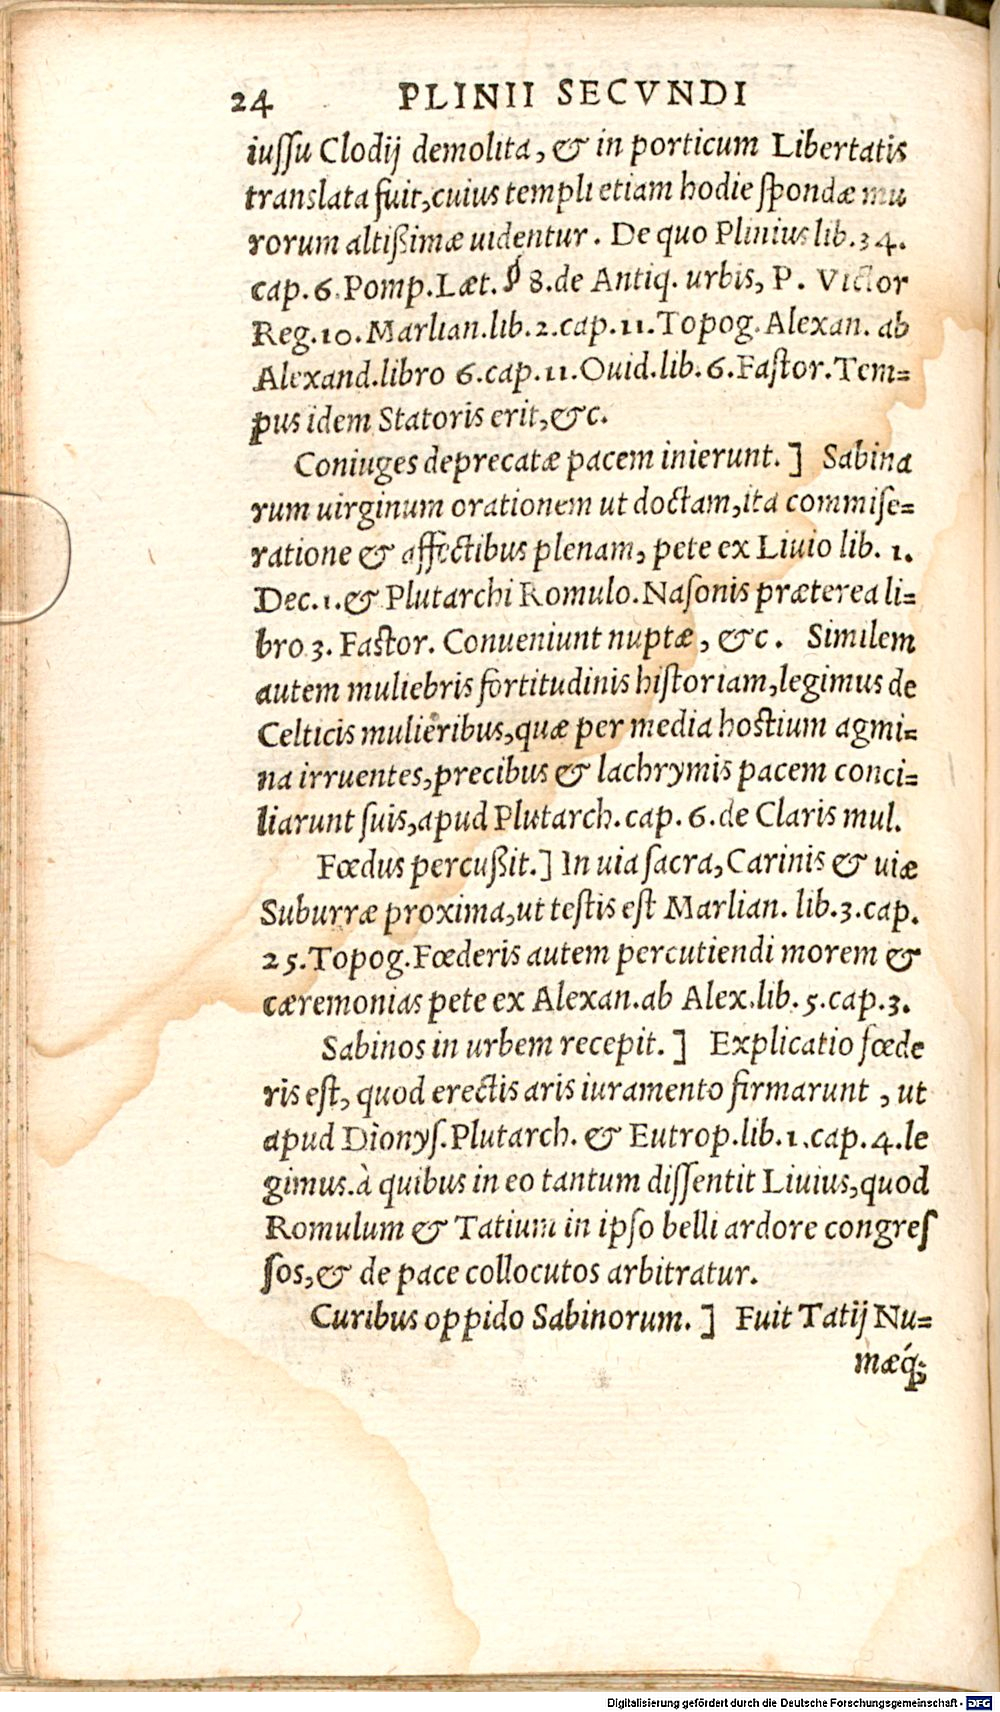 24 PLINII SECVNDI
iuſſu Clodij demolita, & in porticum Libertatis
translata fuit, cuius templi etiam hodie ſpondæ mu
rorum altißimæ uidentur. De quo Plinius lib. 34.
cap. 6. Pomp. Læt. 8. de Antiq. urbis, P. Victor
Reg. 10. Marlian. lib. 2. cap. 11. Topog. Alexan. ab
Alexand. libro 6. cap. 11. Ouid. lib. 6. Faſtor. Tem=
pus idem Statoris erit, &c.
Coniuges deprecatæ pacem inierunt.] Sabina
rum uirginum orationem ut doctam, ita commiſe=
ratione & affectibus plenam, pete ex Liuio lib. 1.
Dec. 1. & Plutarchi Romulo. Naſonis præterea li=
bro 3. Faſtor. Conueniunt nuptæ, &c. Similem
autem muliebris fortitudinis hiſtoriam, legimus de
Celticis mulieribus, quæ per media hoſtium agmi=
na irruentes, precibus & lachrymis pacem conci=
liarunt ſuis, apud Plutarch. cap. 6. de Claris mul.
Fœdus percußit.] In uia ſacra, Carinis & uiæ
Suburræ proxima, ut teſtis eſt Marlian. lib. 3. cap.
25. Topog. Fœderis autem percutiendi morem &
cæremonias pete ex Alexan. ab Alex. lib. 5. cap. 3.
Sabinos in urbem recepit.] Explicatio fœde
ris eſt, quod erectis aris iuramento firmarunt, ut
apud Dionyſ. Plutarch. & Eutrop. lib. 1. cap. 4. le
gimus. à quibus in eo tantum diſſentit Liuius, quod
Romulum & Tatium in ipſo belli ardore congreſ
ſos, & de pace collocutos arbitratur.
Curibus oppido Sabinorum.] Fuit Tatij Nu=
mæq́;
Digitalisierung gefördert durch die Deutsche Forschungsgemeinschaft - DFG